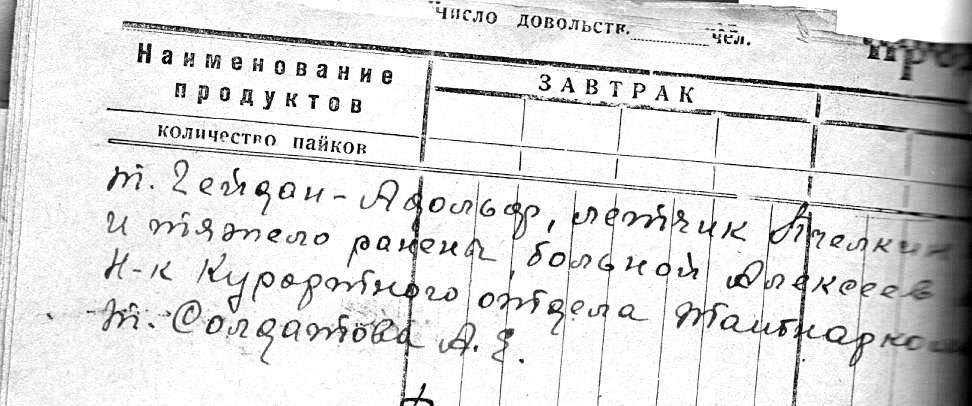 Число довольств. чел.
Наименование
продуктов
ЗАВТРАК
количество пайков
т. Гейдан-Адольф, летчик Пчелкин
и тяжело ранены, больной Алексеев
Н-к Курортного отдела
т. Солдатова А.